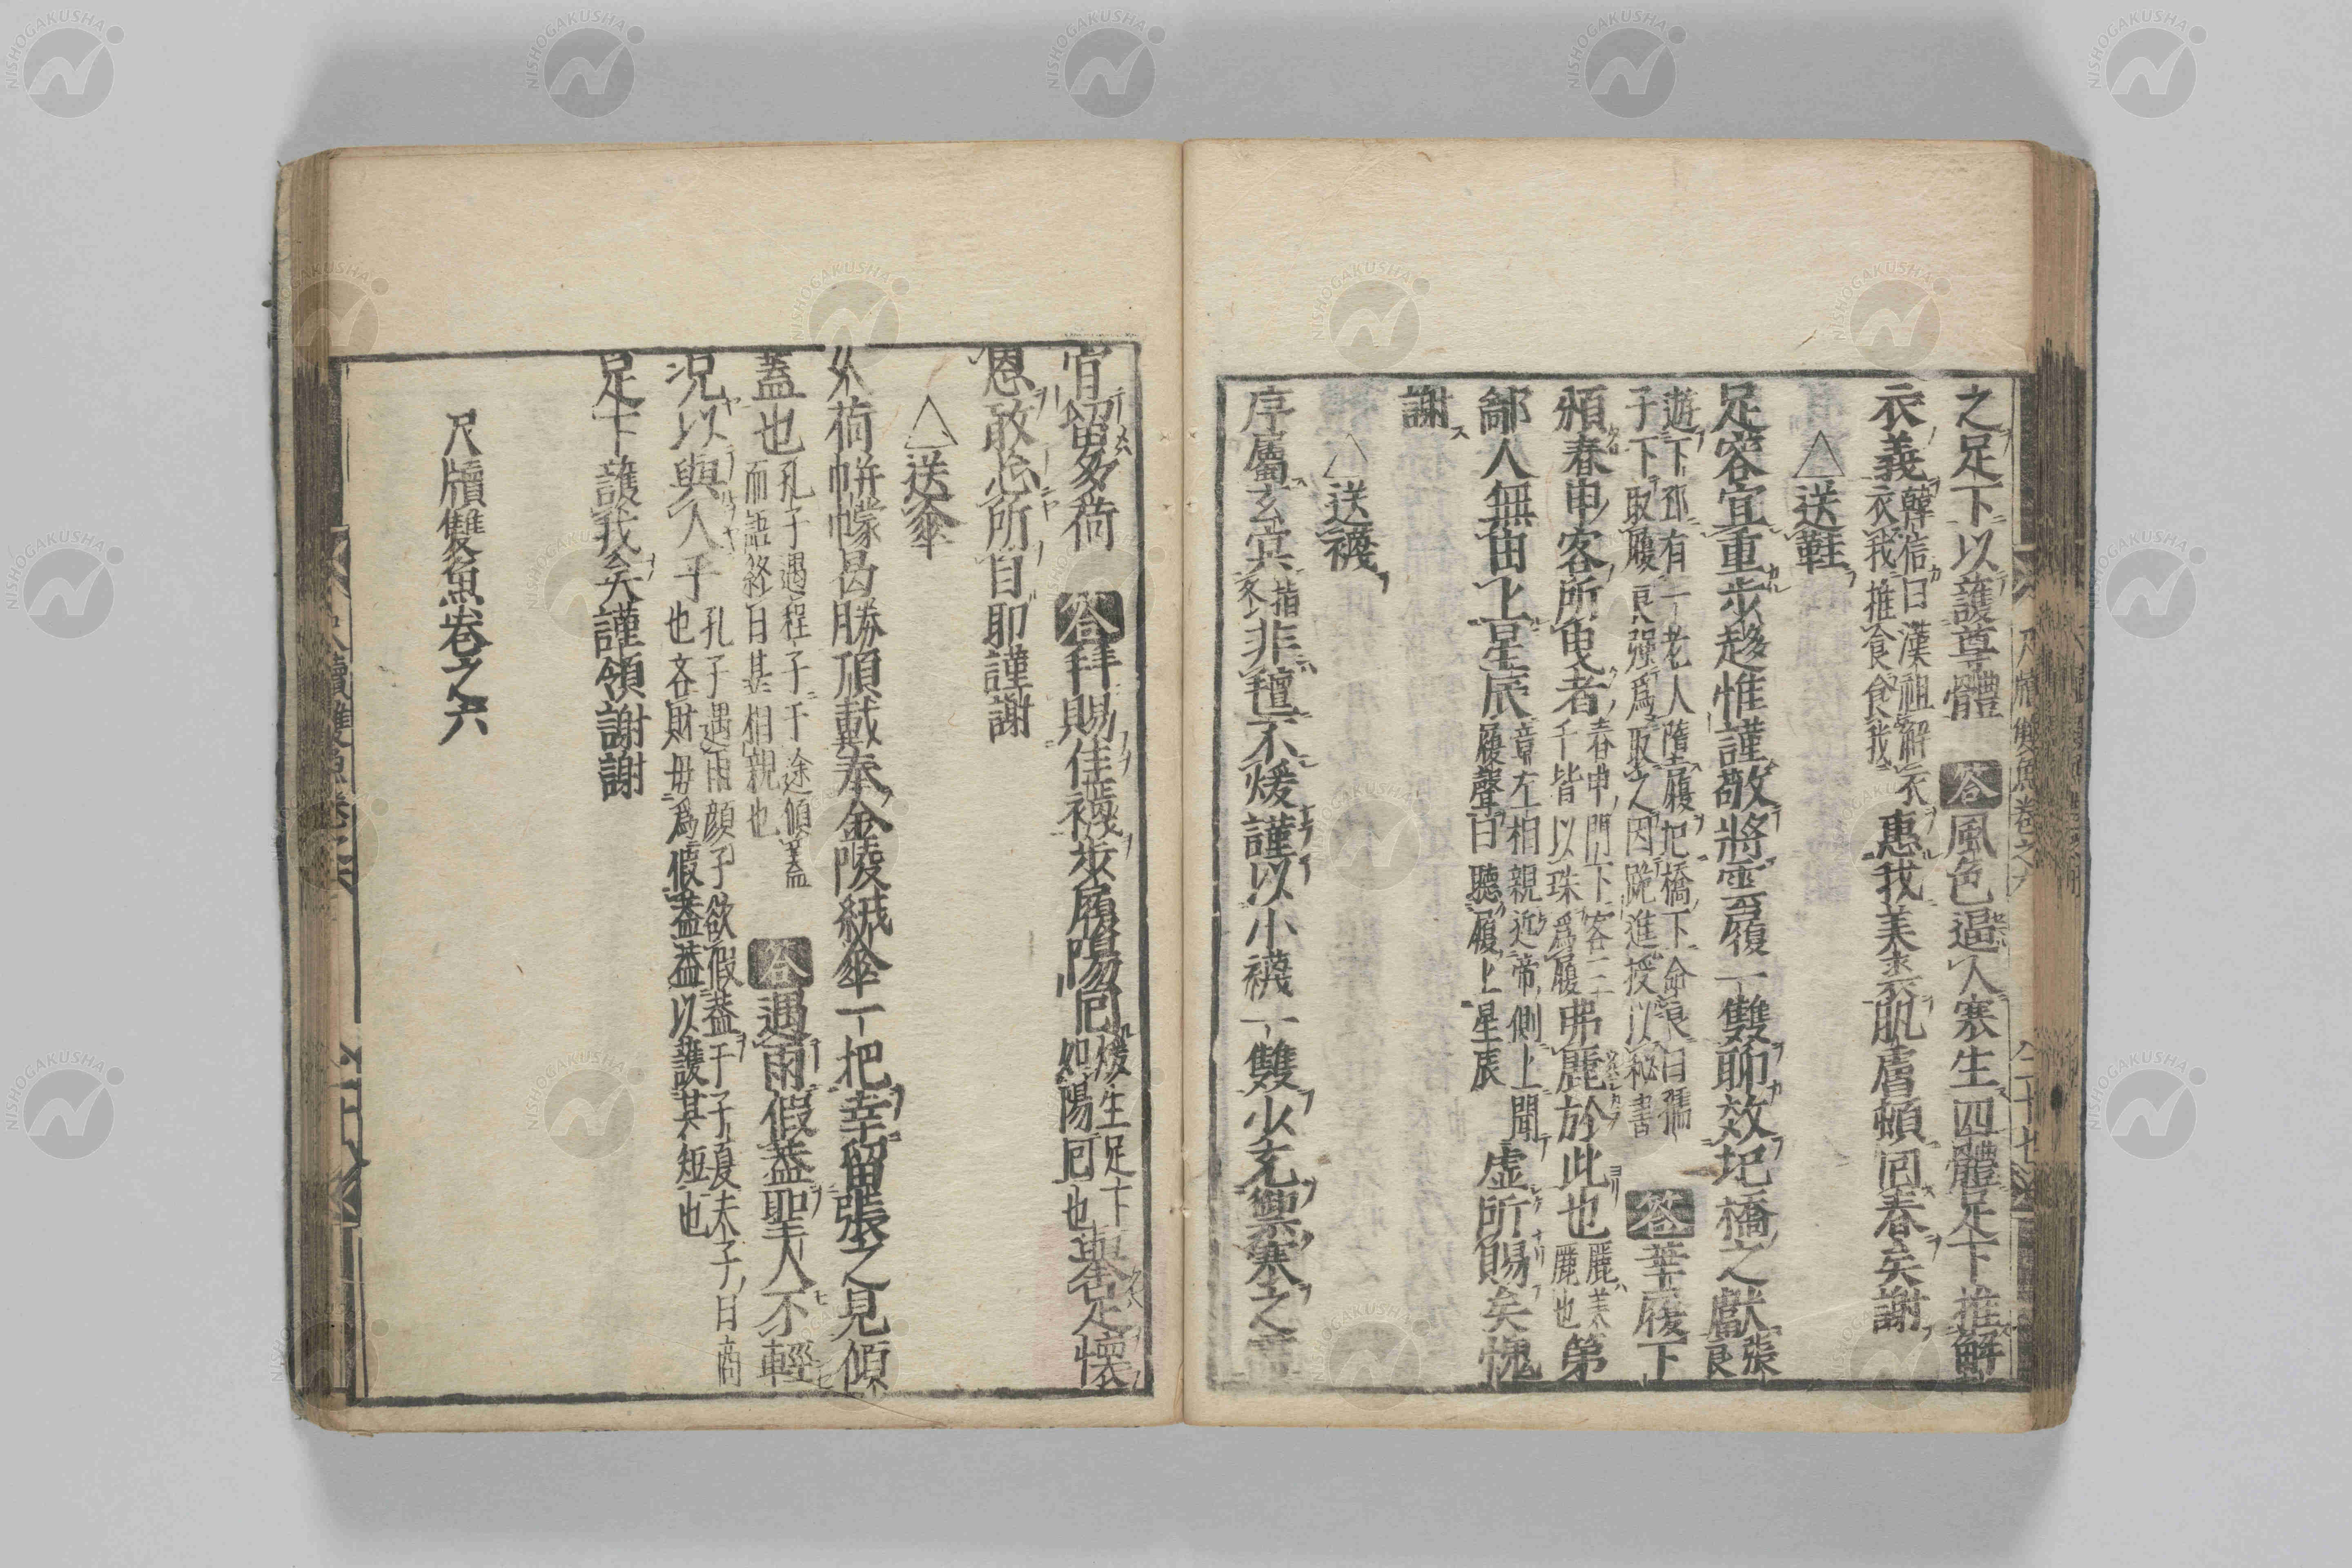 之足下以護尊體 答風色逼人寒生四體足下推解
衣義韓信曰漢祖解衣衣我推食食我惠我美裘肌膚頓回春矣謝
△送鞋
足容宜重步趍惟謹敬將雲履一雙聊效圯橋之獻張良
遊下邳有一老人墮履圯橋下命良曰孺子下取履良强爲取之因跪進授以秘書 答華履下
頒春申客所曳者春申門下客三千皆以珠爲履弗麗於此也麗美麗也第
鄙人無由上星辰章左相親近帝側上聞履聲曰聽履上星辰虚所賜矣愧
謝
△送襪
序屬玄冥指冬非氊不煖謹以小襪一雙少充禦寒之需
官留多荷 答拜賜佳襪步履陽回煖生足下如陽回也舉足懷
恩敢忘所自耶謹謝
△送傘
久荷帡幪曷勝頂戴奉金陵絨傘一把幸留張之見傾
蓋也孔子遇程子于途傾蓋而語終日甚相親也 答遇雨假蓋聖人不輕
况以與人乎孔子遇雨顔子欲假蓋于子夏夫子曰商也吝財毋爲假蓋蓋以護其短也
足下護我矣謹領謝謝
尺牘雙魚卷之六
NISHOGAKUSHA